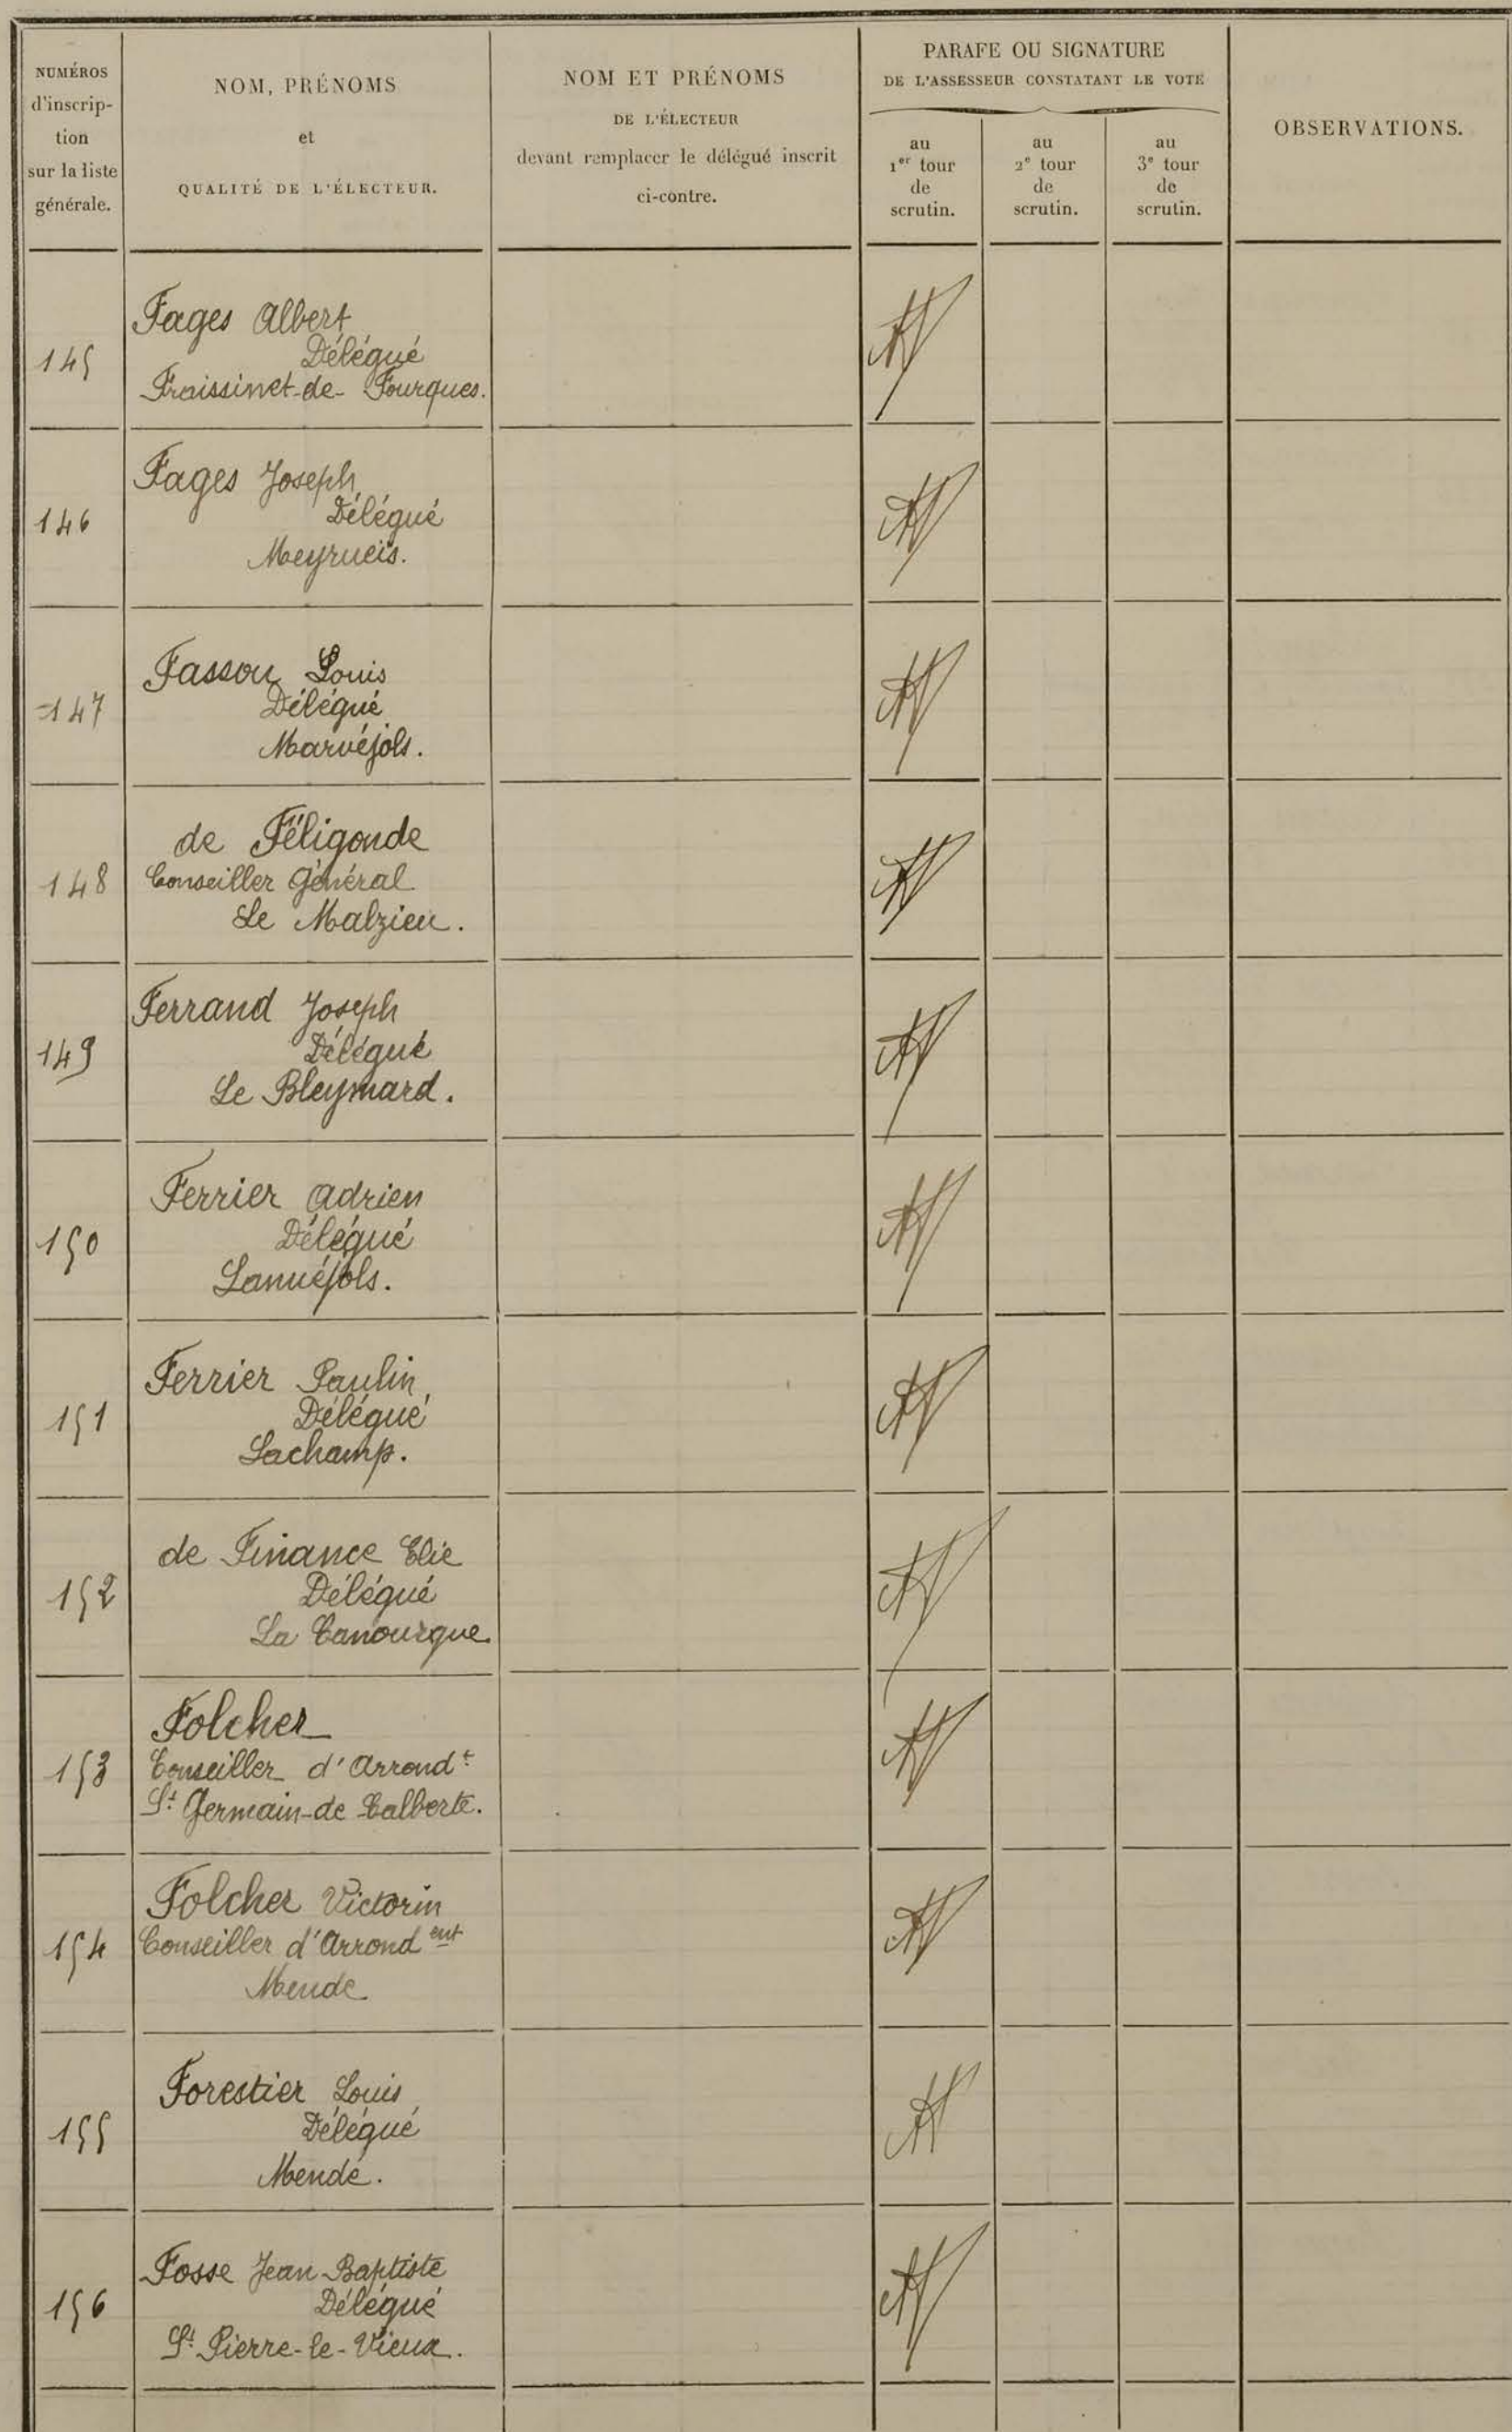 NUMÉROS
d'inscrip-
tion
sur la liste
générale.
NOM, PRÉNOMS
et
QUALITÉ DE L'ÉLECTEUR.
NOM ET PRÉNOMS
DE L'ÉLECTEUR
devant remplacer le délégué inscrit
ci-contre.
PARAFE OU SIGNATURE
DE L'ASSESSEUR CONSTATANT LE VOTE
au
1er tour
de
scrutin.
au
2e tour
de
scrutin.
au
3e tour
de
scrutin.
OBSERVATIONS.
145
Fages Albert
Délégué
Fraissinet-de-Fourques.
146
Fages Joseph
Délégué
Meyrueis.
147
Fassou Louis
Délégué
Marvéjols.
148
de Féligonde
Conseiller Général
Le Malzieu.
149
Ferrand Joseph
Délégué
Le Bleymard.
150
Ferrier Adrien
Délégué
Lanuéjols.
151
Ferrier Paulin
Délégué
Lachamp.
152
de Finance Elie
Délégué
La Canourgue
153
Folcher
Conseiller d'Arrondt
St Germain-de Calberte.
154
Folcher Victorin
Conseiller d'Arrondent
Mende
155
Forestier Louis
Délégué
Mende.
156
Fosse Jean-Baptiste
Délégué
St Pierre-le-Vieux.